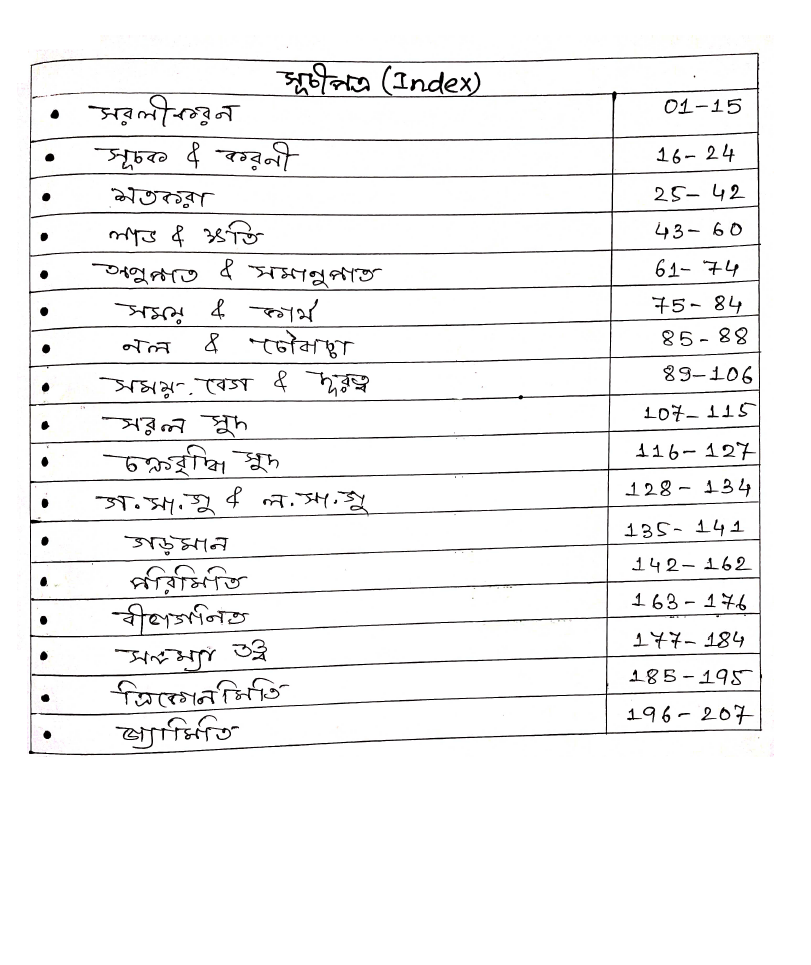 সূচীপত্র (Index)
• সরলীকরন 01-15
• সূচক & করনী 16-24
• শতকরা 25-42
• লাভ & ক্ষতি 43-60
• অনুপাত & সমানুপাত 61-74
• সময় & কার্য 75-84
• নল & চৌবাচ্চা 85-88
• সময়-বেগ & দূরত্ব 89-106
• সরল সুদ 107-115
• চক্রবৃদ্ধি সুদ 116-127
• গ.সা.গু & ল.সা.গু 128-134
• গড়মান 135-141
• পরিমিতি 142-162
• বীজগনিত 163-176
• সংখ্যা তত্ত্ব 177-184
• ত্রিকোনমিতি 185-195
• জ্যামিতি 196-207